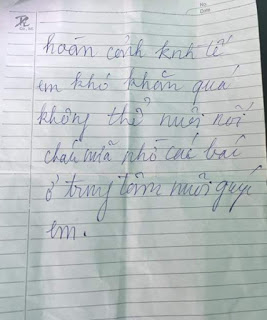 hoàn cảnh knh tế
em khó khăn quá
không thể nuôi nổi
cháu mà nhờ các bác
ở trung tâm nuôi giúp
em.